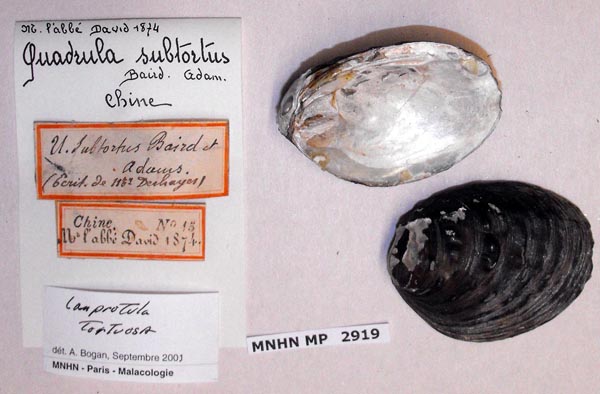 M. l'abbé David 1874
Quadrula subtortus
Baird. Adam.
Chine
U. Subtortus Baird et
Adams.
(Écrit. de Mr Deshayes)
Chine. No 15
Mr l'abbé David 1874.
Lamprotula
tortuosa
dét. A. Bogan, Septembre 2001
MNHN - Paris - Malacologie
MNHN MP 2919